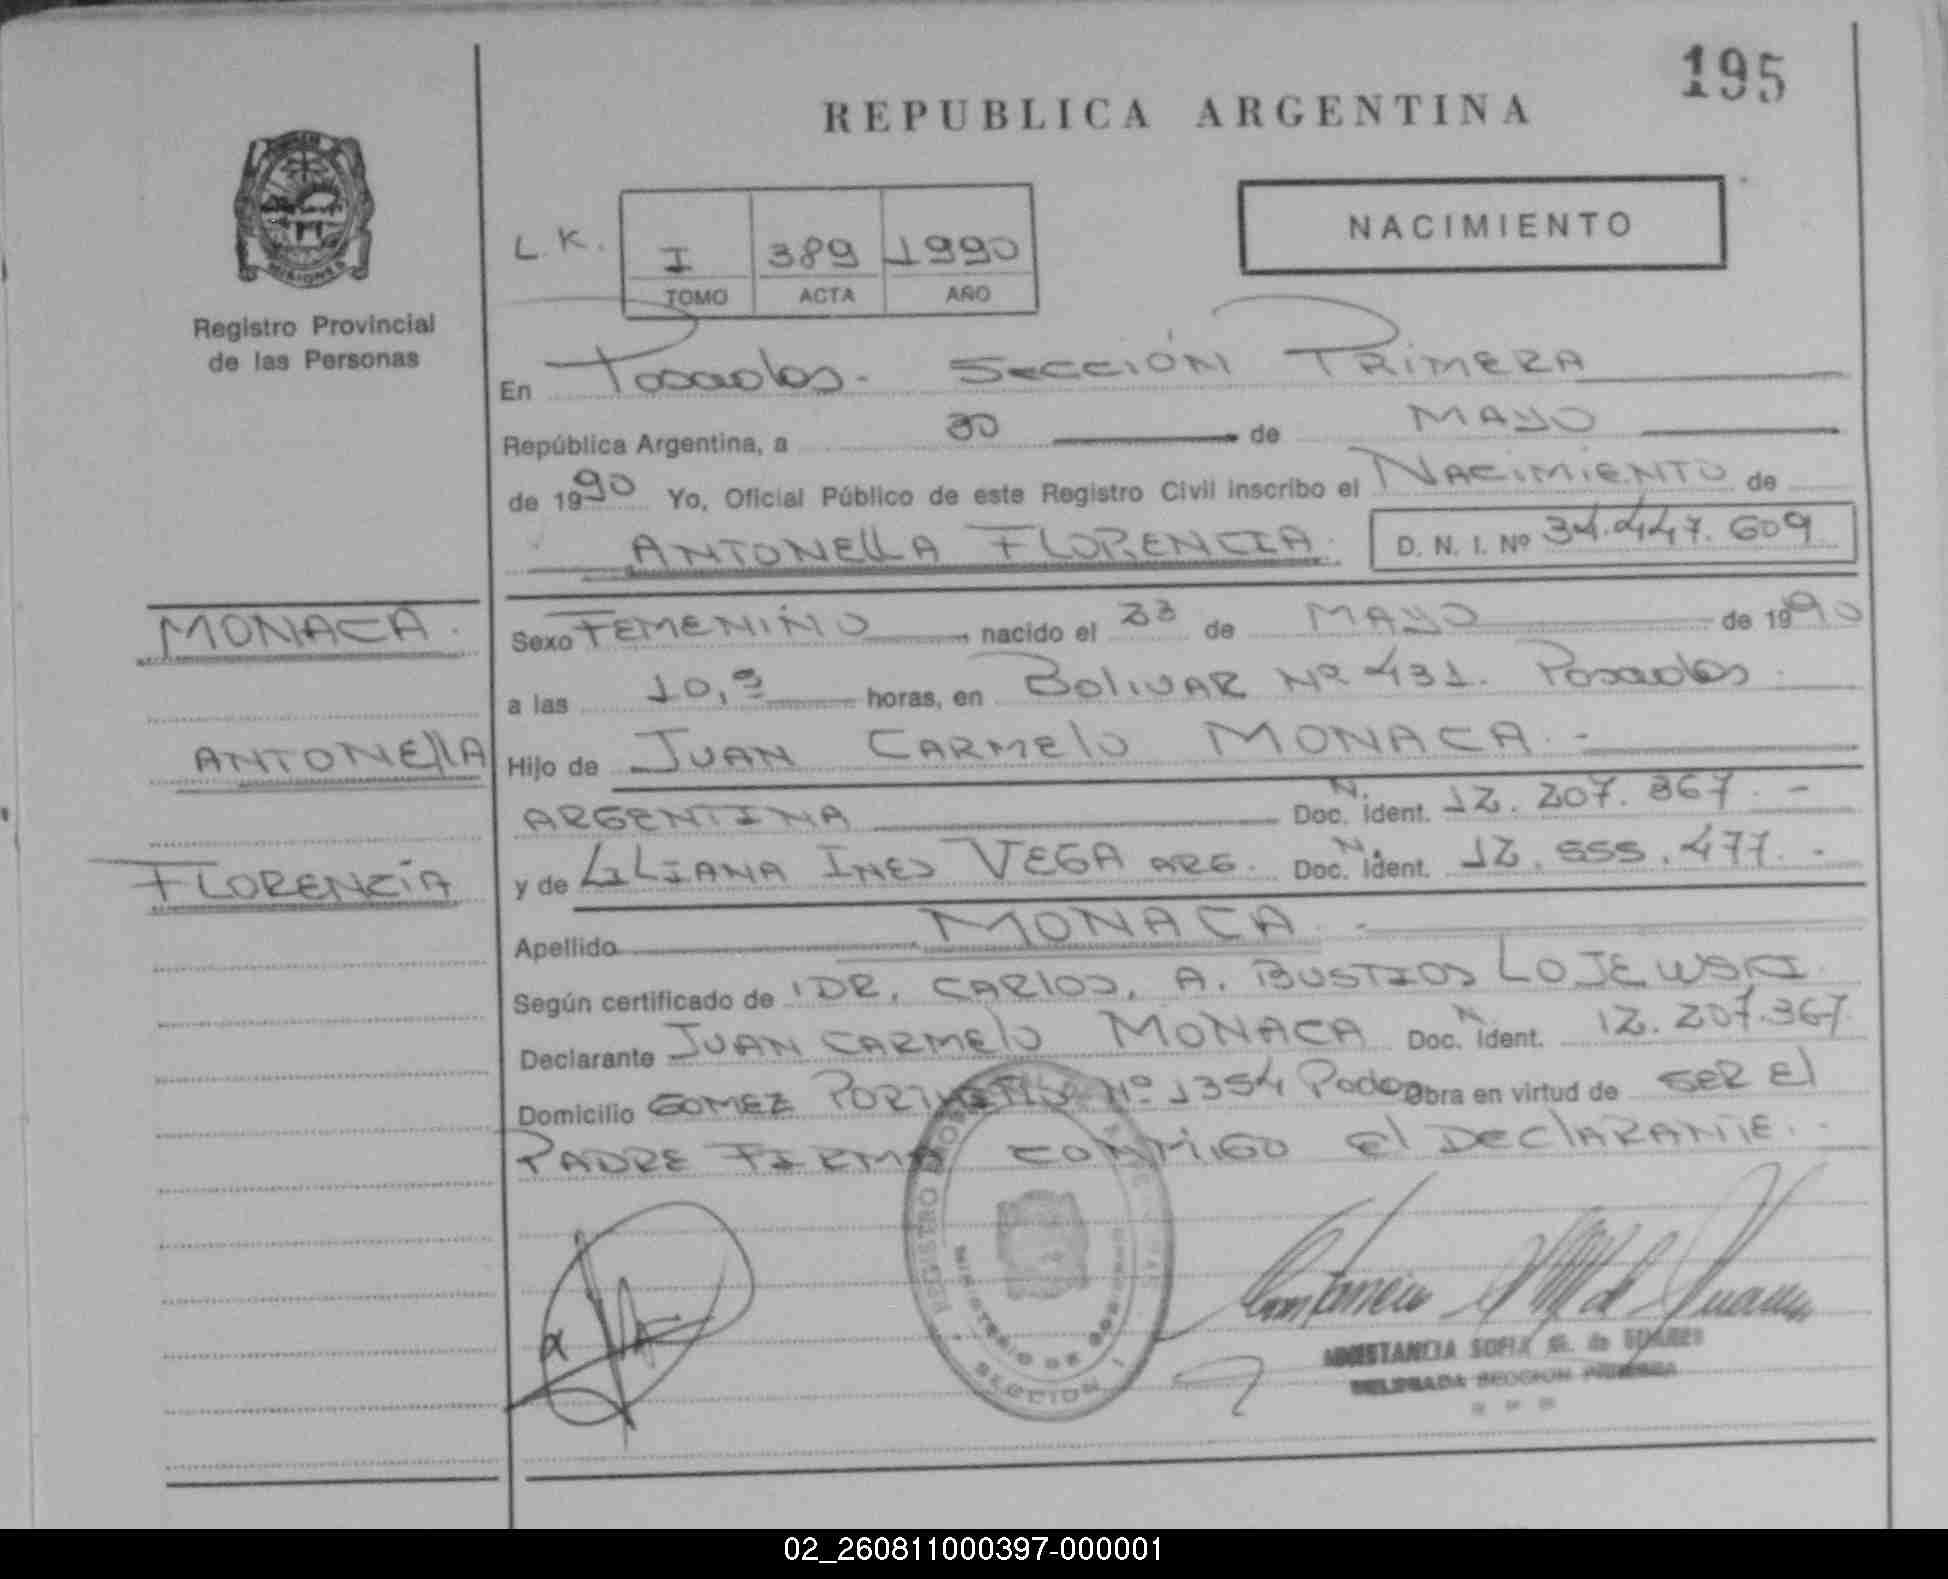 195
REPUBLICA ARGENTINA
NACIMIENTO
L.K.
I 389 1990
TOMO ACTA AÑO
MISIONES
Registro Provincial
de las Personas
En Posadas. SECCIÓN PRIMERA
República Argentina, a 30 de MAYO
de 1990 Yo, Oficial Público de este Registro Civil inscribo el NACIMIENTO de
ANTONELLA FLORENCIA. D. N. I. Nº 34.447.609
MONACA.
ANTONELLA
FLORENCIA
Sexo FEMENINO, nacido el 23 de MAYO de 1990
a las 10, horas, en BOLIVAR Nº 431. Posadas.
Hijo de JUAN CARMELO MONACA.-
ARGENTINA Doc. N. Ident. 12.207.367.-
y de LILIANA INES VEGA ARG. Doc. N. Ident. 12.555.477.-
Apellido MONACA.-
Según certificado de DR. CARLOS. A. BUSTIOS LOJEWSKI.
Declarante JUAN CARMELO MONACA Doc. N. Ident. 12.207.367.
Domicilio GOMEZ PORTINHO Nº 1354 Obra en virtud de SER El
PADRE FIRMA CONMIGO El DECLARANTE.-
REGISTRO
MINISTERIO DE GOBIERNO
SECCION 1
SOFIA de
DELEGADA SECCION PRIMERA
02_260811000397-000001